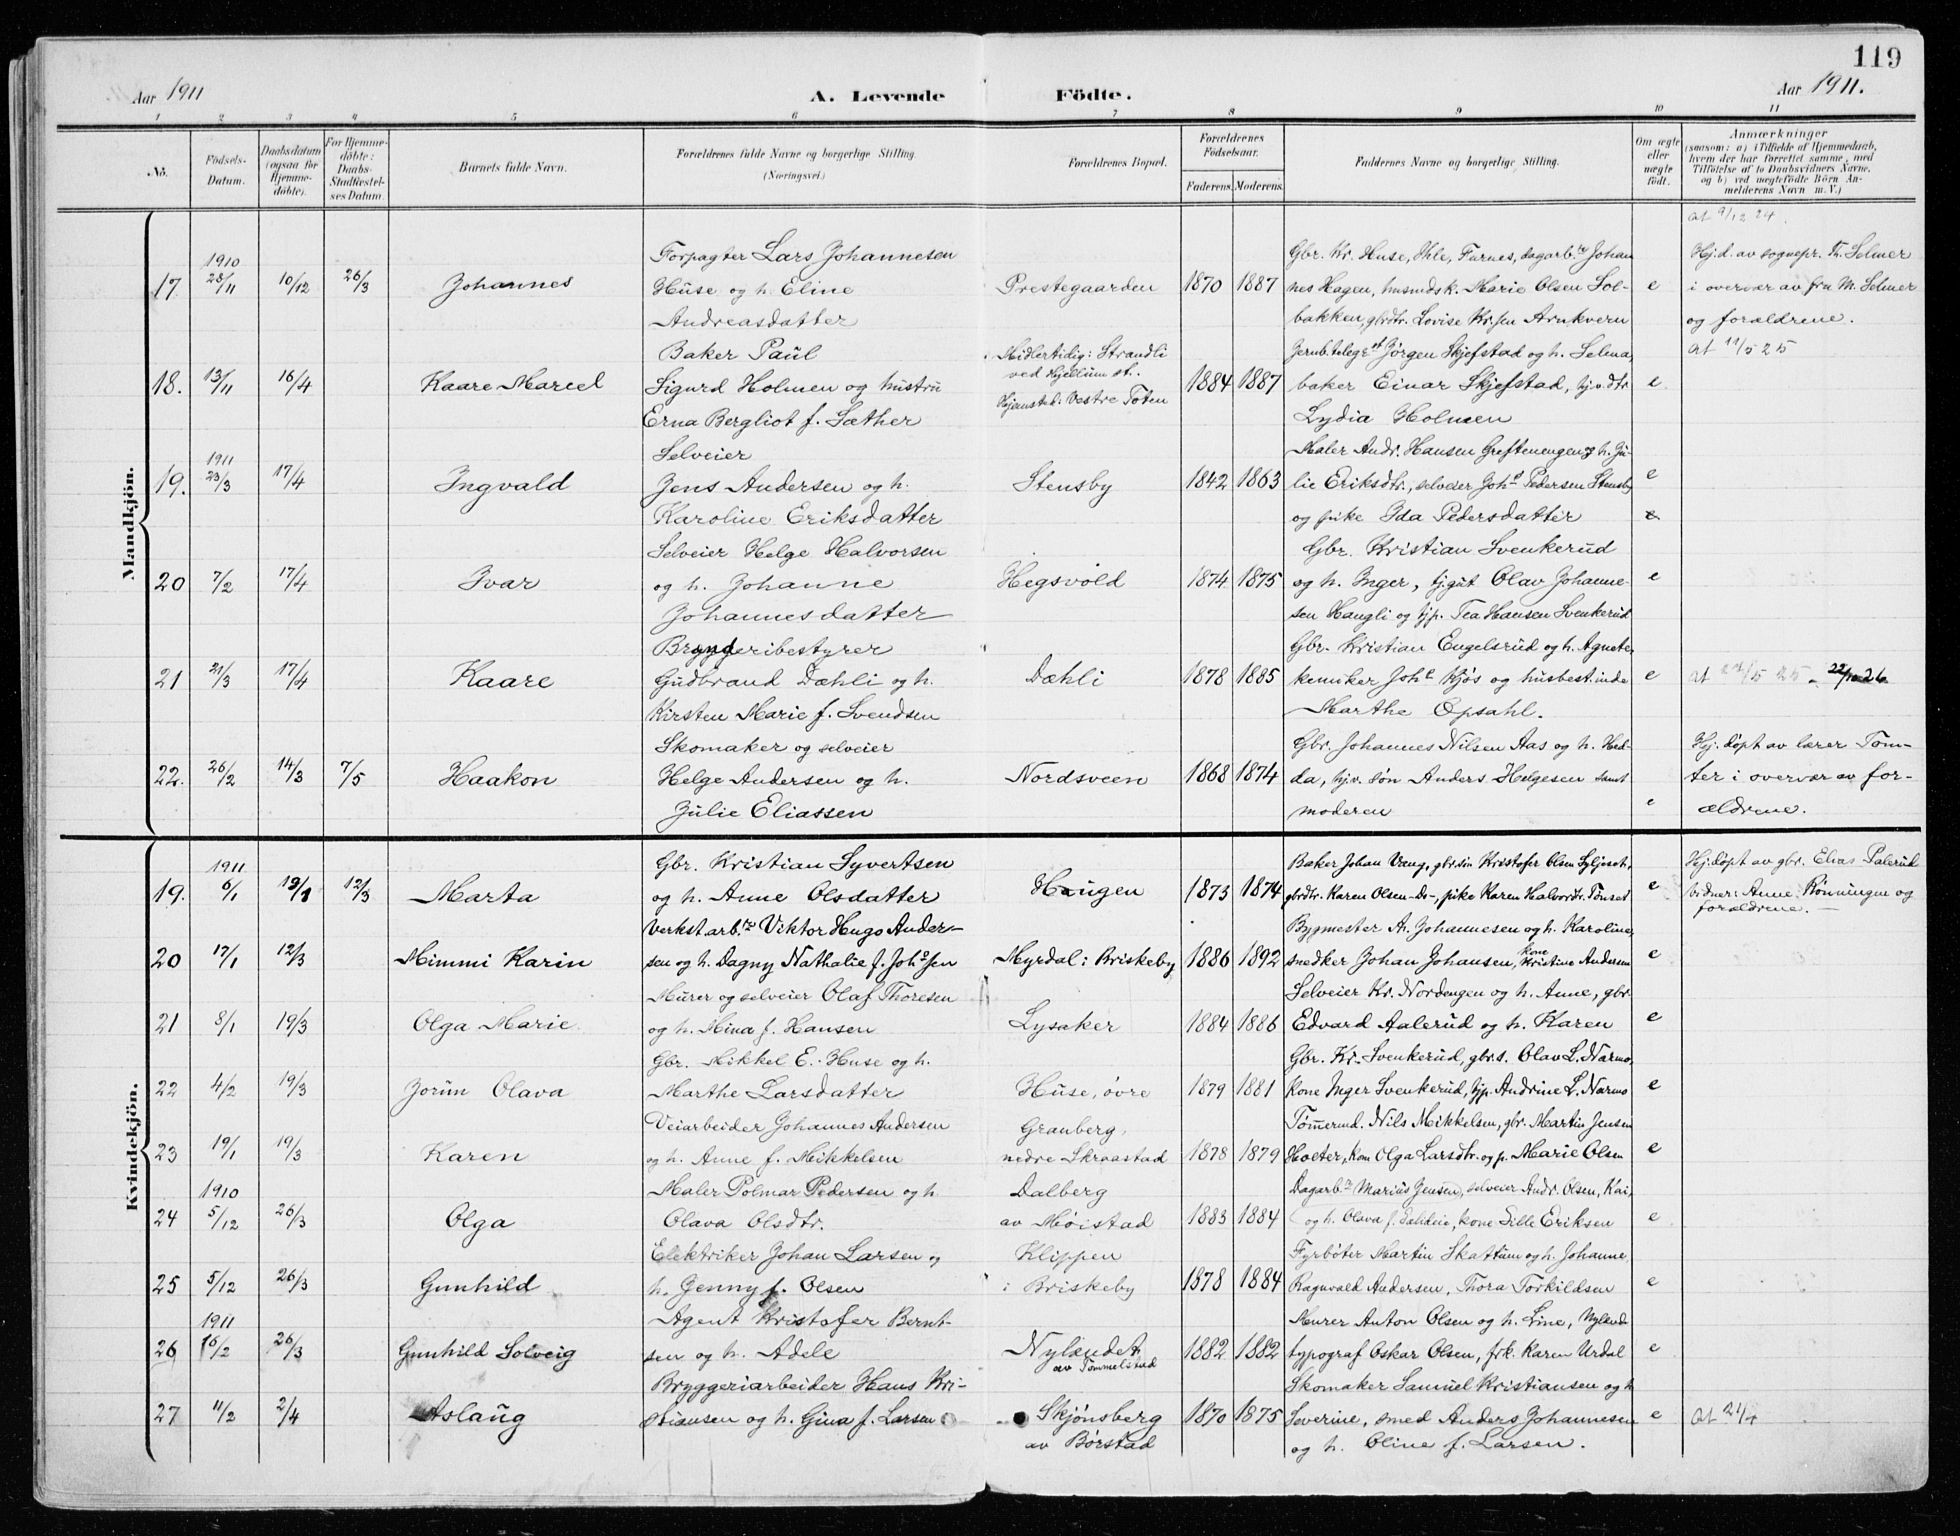 119
Aar 1911
A. Levende Födte.
Aar 1911.
1 2 3 4 5 6 7 8 9 10 11
No.
Födsels-Datum.
Daabsdatum (ogsaa for Hjemmedöbte).
For Hjemmedöbte: Daabs-Stadfæstelses Datum.
Barnets fulde Navn.
Forældrenes fulde Navne og borgerlige Stilling.
(Næringsvei.)
Forældrenes Bopæl.
Forældrenes Födselsaar.
Faderens. Moderens.
Faddernes Navne og borgerlige Stilling.
Om ægte eller uægte födt.
Anmærkninger
(saasom: a) i Tilfælde af Hjemmedaab, hvem der har forrettet samme, med Tilföielse af to Daabsvidners Navne, og b) ved uægtefödte Börn Anmelderens Navn m. V.)
Mandkjön.
17. 1910 28/11 10/12 26/3 Johannes
Forpagter Lars Johannesen
Huse og h. Eline
Andreasdatter
Prestegaarden 1870 1887
Gbr. Kr. Huse, Ihle, Furnes, dagarb. Johan
nes Hagen, husmdsk. Marie Olsen Sol-
bakken, gbrdtr. Lovise Kr.sen Arnkvern
e
at 9/12 24.
Hj.d. av sognepr. Th. Selmer
i overvær av fru M. Selmer
og forældrene.
18. 13/11 16/4 Kaare Marcel
Baker Paul
Sigurd Holmen og hustru
Erna Bergliot f. Sæther
Midlertidig: Strandli
ved Hjellum st.
Hjemsted: Vestre Toten
1884 1887
Jernb.teleg. Jörgen Skjefstad og h. Selma,
baker Einar Skjefstad, hj.v.dtr.
Lydia Holmen
e
at 11/5 25
19. 1911 23/3 17/4 Ingvald
Selveier
Jens Andersen og h.
Karoline Eriksdatter
Stensby 1842 1863
Maler Andr. Hansen Greftenengen og h. Ju-
lie Eriksdtr., selveier Joh. Pedersen Stensby
og pike Ida Pedersdatter
e
20 7/2 17/4 Ivar
Selveier Helge Halvorsen
og h. Johanne
Johannesdatter
Hegsvold 1874 1875
Gbr. Kristian Svenkerud
og h. Inger, tj.gut Olav Johanne-
sen Haugli og tjp. Tea Hansen Svenkerud
e
21 21/3 17/4 Kaare
Bryggeribestyrer
Gudbrand Dæhli og h.
Kirsten Marie f. Svendsen
Dæhli 1878 1885
Gbr. Kristian Engelsrud og h. Agnete,
kemiker Joh. Kjøs og husbest.inde
Marthe Opsahl.
e
22. 26/2 14/3 7/5 Haakon
Skomaker og selveier
Helge Andersen og h.
Julie Eliassen
Nordsveen 1868 1874
Gbr. Johannes Nilsen Aas og h. Hed-
da, hj.v. søn Anders Helgesen samt
moderen
e
Hj.døpt av lærer Tom-
ter i overvær av for-
ældrene.
Kvindekjön.
19. 1911 6/1 12/3 Marta
Gbr. Kristian Syvertsen
og h. Anne Olsdatter
Haugen 1873 1874
Baker Johan Vang, gbr.søn Kristofer Olsen
gbrdtr. Karen Olsen -ds-, pike Karen Halvordtr. Tønset
e
Hj.døpt av gbr. Elias Palerud
vidner: Anne Rønningen og
forældrene.
20 17/1 12/3 Mimmi Karin
Verkst.arb. Viktor Hugo Ander-
sen og h. Dagny Nathalie f. Joh.sen
Myrdal: Briskeby 1886 1892
Bygmester A. Johannesen og h. Karoline,
snedker Johan Johansen, kone Kristine Andersen
e
21 8/1 19/3 Olga Marie
Murer og selveier Olaf Thoresen
og h. Mina f. Hansen
Lysaker 1884 1886
Selveier Kr. Nordengen og h. Anne, gbr.
Edvard Aalerud og h. Karen
e
22 4/2 19/3 Jorun Olava
Gbr. Mikkel E. Huse og h.
Marthe Larsdatter
Huse, övre 1879 1881
Gbr. Kr. Svenkerud, gbr.s. Olav L. Narmo,
kone Inger Svenkerud, tjp. Andrine L. Narmo
e
23 19/1 19/3 Karen
Veiarbeider Johannes Andersen
og h. Anne f. Mikkelsen
Granberg,
nedre Skraastad
1878 1879
Tömmermd. Nils Mikkelsen, gbr. Martin Jensen
Hoeter, kone Olga Larsdtr. og p. Marie Olsen
e
24 1910 5/12 26/3 Olga
Maler Polmar Pedersen og h.
Olava Olsdtr.
Dalberg
av Møistad
1883 1884
Dagarb. Marius Jensen, selveier Andr. Olsen, Kai,
og h. Olava f. kone Sille Eriksen
e
25 5/12 26/3 Gunhild
Elektriker Johan Larsen og
h. Jenny f. Olsen
Klippen
i Briskeby
1878 1884
Fyrbøter Martin Skattum og h. Johanne,
Ragnvald Andersen, Thora Torkildsen
e
26 1911 16/2 26/3 Gunhild Solveig
Agent Kristofer Bernt-
sen og h. Adele
Nylændet
av Tommelstad
1882 1882
Murer Anton Olsen og h. Line, Nylænd.
typograf Oskar Olsen, frk. Karen Urdal
e
27 11/2 2/4 Aslaug
Bryggeriarbeider Hans Kri-
stiansen og h. Gina f. Larsen
Skjönsberg
av Börstad
1870 1875
Skomaker Samuel Kristiansen og h
Severine, smed Anders Johannesen
og h. Oline f. Larsen.
e